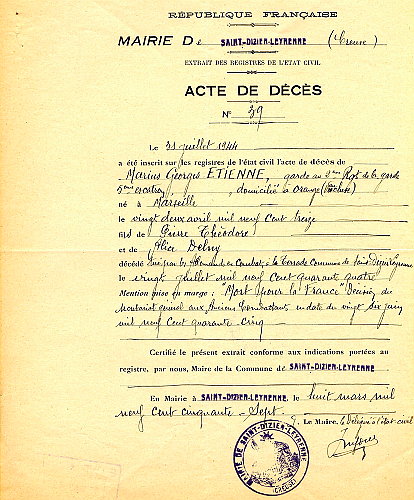 RÉPUBLIQUE FRANÇAISE
MAIRIE De SAINT-DIZIER-LEYRENNE (Creuse)
EXTRAIT DES REGISTRES DE L'ÉTAT CIVIL
ACTE DE DÉCÈS
N° 39
Le 31 juillet 1944
a été inscrit sur les registres de l'état civil l'acte de décès de
Marius Georges ETIENNE, garde au Rgt de la garde
5ème escadron, domicilié à Orange
né à Marseille
le vingt deux avril mil neuf cent treize
fils de Pierre Théodore
et de Alice
décédé par les Allemands en Combat, à la Commune de Saint Dizier Leyrenne
le vingt juillet mil neuf cent quarante quatre
Mention mise en marge : "Mort pour la France" Décision du
Secrétariat général aux Anciens Combattants en date du vingt six juin
mil neuf cent quarante cinq
Certifié le présent extrait conforme aux indications portées au
registre, par nous, Maire de la Commune de SAINT-DIZIER-LEYRENNE
En Mairie à SAINT-DIZIER-LEYRENNE, le huit mars mil
neuf cent cinquante sept
Le Maire, le Délégué à l'état civil
MAIRIE DE SAINT-DIZIER-LEYRENNE
(CREUSE)